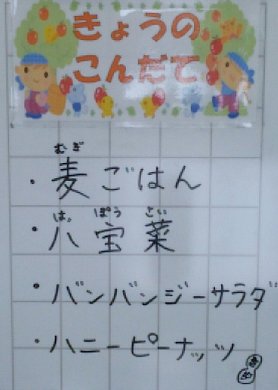 きょうの
こんだて
・麦ごはん
・八宝菜
・バンバンジーサラダ
・ハニーピーナッツ